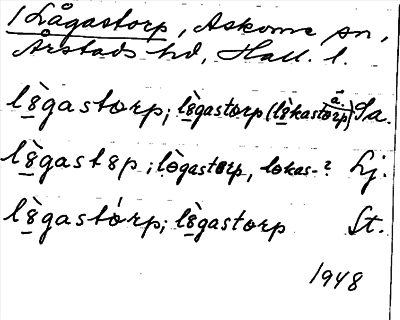 /Lågastorp, Askome sn,
Årstads hd, Hall. l.
lògastorp; lògastorp (lòkastorp) Sa.
lògastep; lògastorp, lokas-? Lj.
lògastórp; lògastorp St.
1948